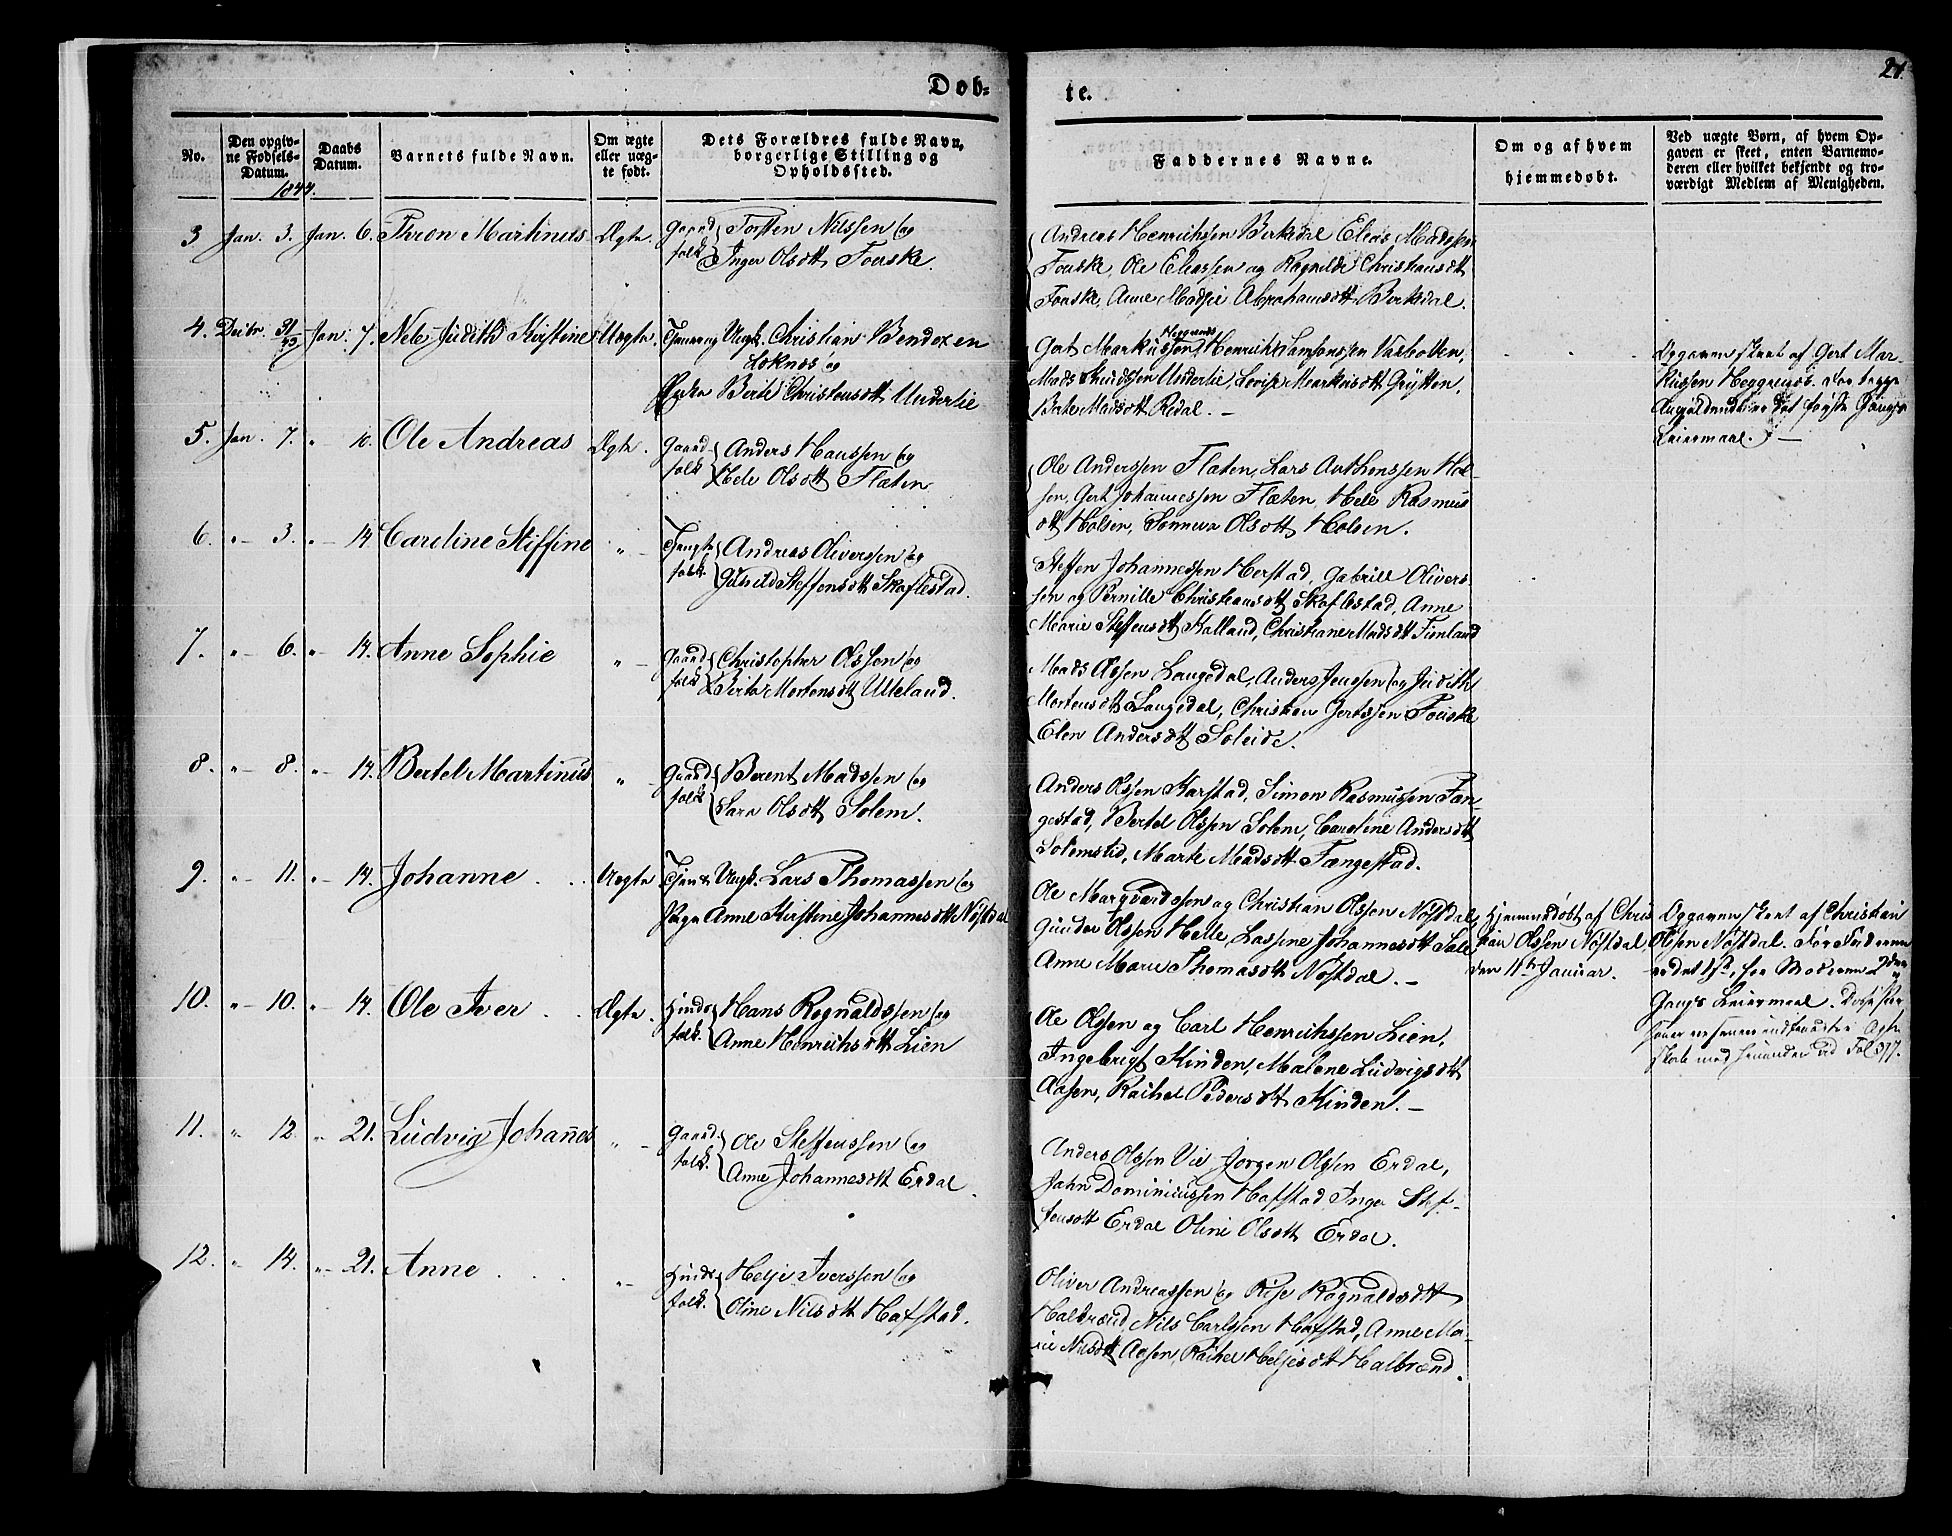 21.
Døb-
te.
No.
Den opgiv-
ne Fødsels-
Datum.
1844.
Daabs
Datum.
Barnets fulde Navn.
Om ægte
eller uæg-
te født.
Dets Forældres fulde Navn,
borgerlige Stilling og
Opholdssted.
Faddernes Navne.
Om og af hvem
hjemmedøbt.
Ved uægte Børn, af hvem Op-
gaven er skeet, enten Barnemo-
deren eller hvilket bekjendt og tro-
værdigt Medlem af Menigheden.
3 Jan. 3. Jan. 6. Thron Martinus Ægte. Gaard Torsten Nilssen og
folk Inger Olsdtt Fouske.
Andreas Henrichssen Birkedal Elias Madssen
Fouske, Ole Eliassen og Ragnilde Christiansdtt
Fouske, Anne Madsie Abrahamsdtt Birkedal.
4. Decbr. 31/43 Jan. 7. Nele Judith Kirstine Uægte. Ungk. Christian Bendixen
Løknes og
Pigen Berte Christensdtt Underlie
Gert Markussen Heggenes, Henrich Samsonssen Varbotten,
Mads Knudssen Underlie, Lovise Markusdtt Grytten,
Berte Madsdtt Redal. —
Opgaven skeet af Gert Mar-
kussen Heggenes. For begge
Angjældende er det første Gangs
Leiermaal. —
5. Jan. 7. " 10. Ole Andreas Ægte. Gaard Anders Hanssen og
folk Nele Olsdtt Flæten
Ole Anderssen Flæten, Lars Anthonssen Hol-
sen, Gert Johannessen Flæten, Nele Rasmus
dtt Holsen, Sønneva Olsdtt Holsen.
6. " 3. " 14. Caroline Stiffine " Andreas Oliverssen og
folk. Gunild Steffensdtt Skaflestad.
Steffen Johannessen Herstad, Gabriel Olivers-
sen og Pernille Christiansdtt Skaflestad, Anne
Marie Steffensdtt Halland, Christiane Madsdtt Fimland
7. " 6. " 14. Anne Sophie " Gaard Christopher Olssen og
folk Berte Mortensdtt Utteland.
Mads Olssen Langedal, Anders Jenssen og Judith
Mortensdtt Langedal, Christian Gertssen Fouske
Elen Andersdtt Soleide.
8. " 8. " 14. Bertel Martinus " Gaard Berent Madssen og
folk Sara Olsdtt Solem.
Anders Olssen Karstad, Simon Rasmussen Fæn-
gestad, Bertel Olssen Solem, Caroline Andersdtt
Solemslid, Marte Madsdtt Fængestad.
9. " 11. " 14. Johanne Uægte Tjen. Ungk. Lars Thomassen og
Pigen Anne Kirstine Johannesdtt Nøstdal
Ole Marqvardssen og Christian Olssen Nøstdal,
Gunder Olssen Helle, Lassine Johannesdtt Sæle
Anne Marie Thomasdtt Nøstdal. —
Hjemmedøbt af Chris
tian Olssen Nøstdal
den 11te Januar.
Opgaven skeet af Christian
Olssen Nøstdal. For Faderen
er det 1ste, for Moderen 2den
Gangs Leiermaal. Disse Per-
soner ere senere indtraadte i Ægte-
skab med hinanden vid Fol 377.
10. " 10. " 14. Ole Iver Ægte. Huus Hans Rognaldssen og
folk. Anne Henrichsdtt Lien
Ole Olssen og Carl Henrichssen Lien,
Ingebrigt Kinden, Malene Ludvigsdtt
Aasen, Rachel Pedersdtt Kinden. —
11. " 12. " 21. Ludvig Johannes " Gaard Ole Steffenssen og
folk. Anne Johannesdtt Erdal.
Anders Olssen Vie Jørgen Olssen Erdal,
Jahn Dominicussen Hafstad Inger Stef-
fensdtt Erdal Oline Olsdtt Erdal.
12. " 14. " 21. Anne " Huus Helje Iverssen og
folk. Oline Nilsdtt Hafstad.
Oliver Andreassen og Rise Rognaldsdtt
Halbrend, Nils Carlssen Hafstad, Anne Ma-
rie Nilsdtt Aasen, Rachel Heljesdtt Halbrend.